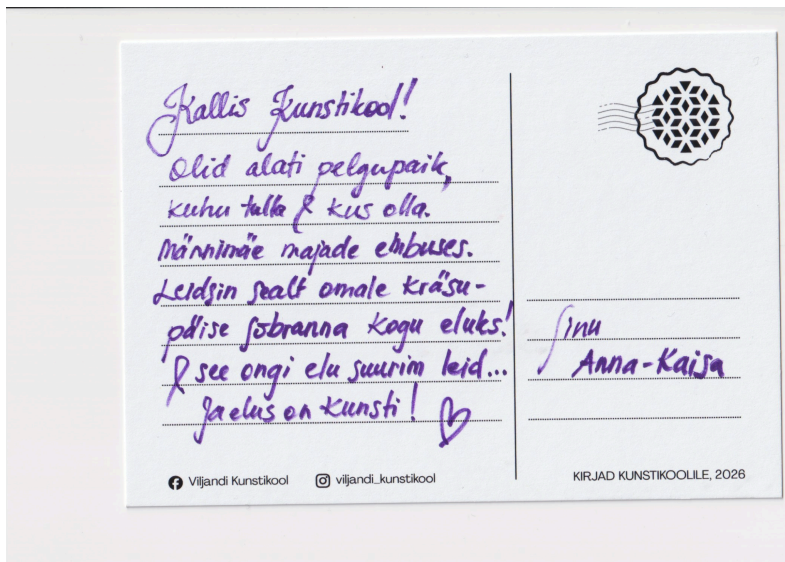 Kallis Kunstikool!
Olid alati pelgupaik,
kuhu tulla & kus olla.
Männimäe majade embuses.
Leidsin sealt omale kräsu-
päise sõbranna kogu eluks!
& see ongi elu suurim leid...
Ja elus on kunsti! ♡
Sinu
Anna-Kaisa
Viljandi Kunstikool
viljandi_kunstikool
KIRJAD KUNSTIKOOLILE, 2026